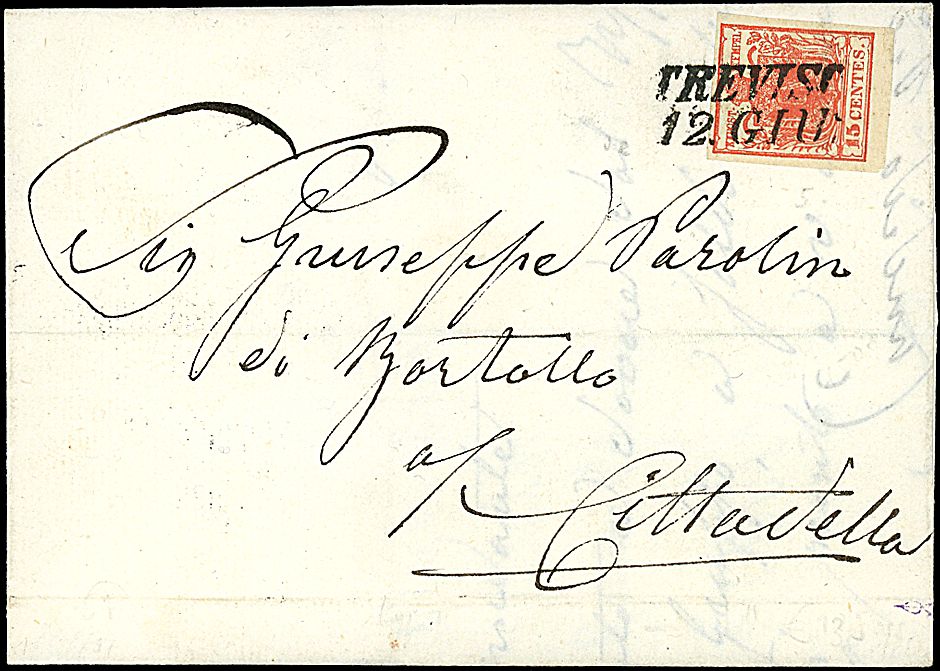 STEMPEL
15 CENTES.
TREVISO
12. GIU:
Sig Giuseppe Parolin
di Bortollo
a/ Cittadella